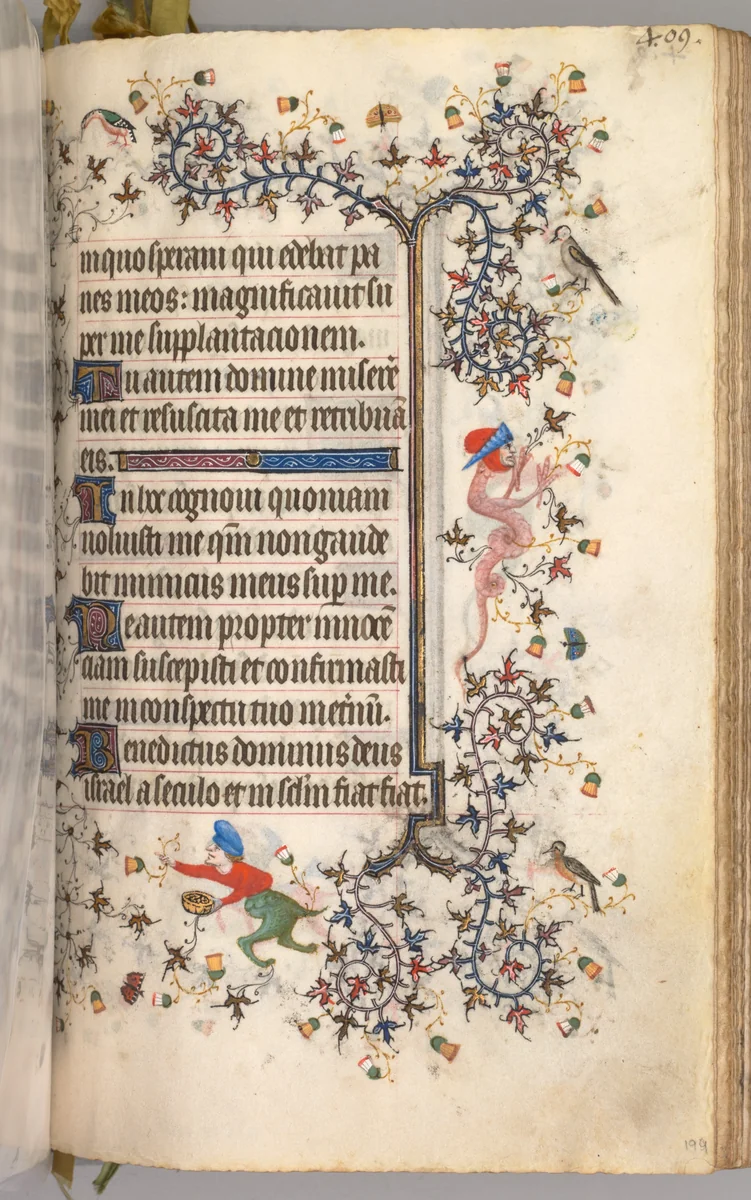 409.
in quo speraui qui edebat pa
nes meos: magnificauit su
per me supplantacionem.
Tu autem domine miserē
mei et resuscita me et retribuā
eis.
In hoc cognoui quoniam
uoluisti me qm̄ non gaude
bit inimicus meus sup̄ me.
Ne autem propter innocē
ciam suscepisti et confirmasti
me in conspectu tuo in et̄nū.
Benedictus dominus deus
israel a seculo et in sc̄lm fiat fiat.
199